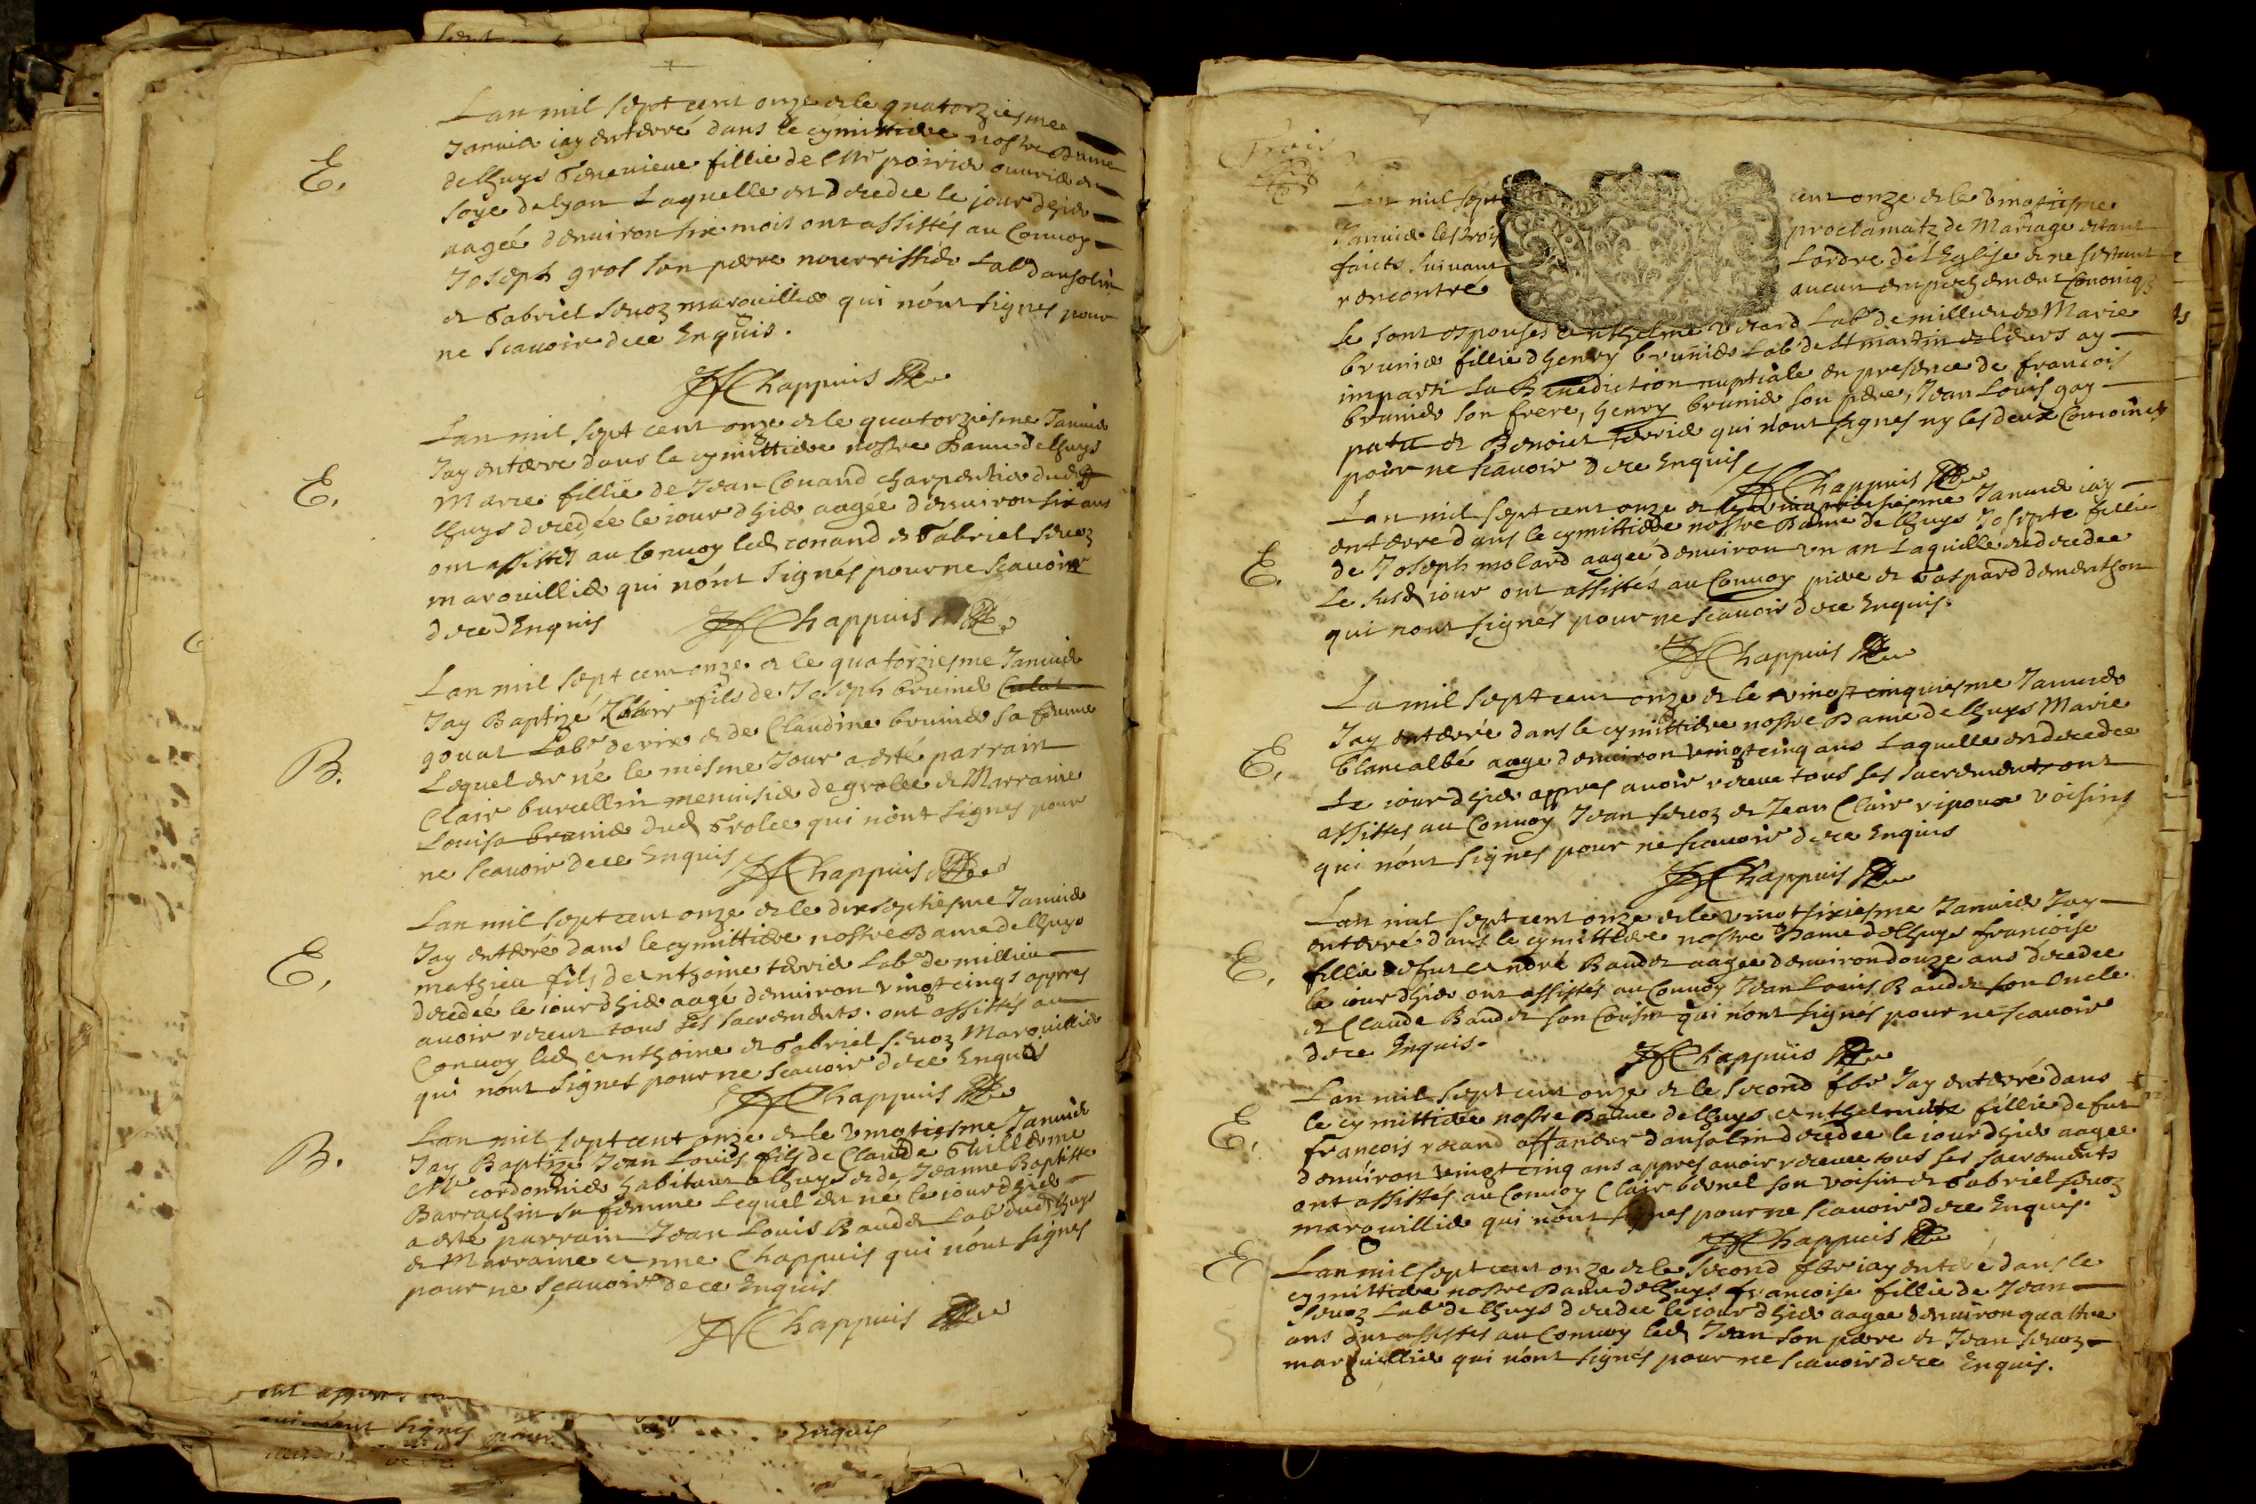 E.
Lan mil sept cent onze et le quatorziesme
Januier iay enterré dans le cymittiere nostre Dame
de Lhuys Geneuieue fillie de Mr poirier ouurier en
soye de lyon Laquelle est decedee le jour d'hier
aagée denuiron six mois ont assistés au Conuoy
Joseph gros son pere nourrissier Labr dansolin
et Gabriel seruoz marouillier qui n'ont signes pour
ne scauoir de ce Enquis.
Chappuis
E.
Lan mil sept cent onze et le quatorziesme Januier
Jay enterre dans le cymittiere nostre Dame de Lhuys
Marie fillie de Jean Conand charpentier dud
Lhuys decedée le iour d'hier aagée denuiron six ans
ont assistés au Conuoy led conand et Gabriel seruoz
marouillier qui n'ont signés pour ne scauoir
de ce Enquis
Chappuis
B.
Lan mil sept cent onze et le quatorziesme Januier
Jay Baptizé Clair fils de Joseph brunier
gouat Labr de rix et de Claudine brunier sa femme
Lequel est né le mesme Jour a esté parrain
Clair burcellin menuisier de grolee et Marraine
Louise brunier dud Grolee qui n'ont signes pour
ne scauoir de ce Enquis
Chappuis
E.
Lan mil sept cent onze et le dix septiesme Januier
Jay enterré dans le cymittiere nostre Dame de Lhuys
mathieu fils de Anthoine terrier Labr de millieu
decedéé le iour d'hier aagé denuiron vingt cinqs appres
auoir receut tous ses sacrements. ont assistés au
Conuoy led Anthoine et Gabriel seruoz Marouillier
qui n'ont signes pour ne scauoir de ce Enquis
Chappuis
B.
Lan mil sept cent onze et le vingtiesme Januier
Jay Baptize Jean Louis fils de Claude Guillerme
Mr cordonnier habitant a Lhuys et de Jeanne Baptiste
Barrachin sa femme Lequel est né le iour d'hier
a esté parrain Jean Louis Baudet Labr dud Lhuys
et Marraine Anne Chappuis qui n'ont signes
pour ne scauoir de ce Enquis
Chappuis
Enquis
Lan mil sept cent onze et le vingtiesme
Januier les trois proclamatz de Mariage estant
faicts suiuant Lordre de l'Eglise et ne sestant
rencontré aucun empechement Cononiq
Se sont espouses Anthelme Vetard Labr de millieu et Marie
brunier fillie d'henry brunier Labr de St martin et Leurs ay
imparti La Benediction nuptiale en presence de francois
brunier son frere, henry brunier son pere, Jean Louis gay
patu et Benoict terrier qui n'ont signes ny les deux Conioincts
pour ne scauoir de ce Enquis
Chappuis
E.
Lan mil sept cent onze et le vingt troisiesme Januier iay
enterre dans le cymittiere nostre Dame de Lhuys Josepte fillie
de Joseph molard aageé denuiron vn an Laquelle est decedee
Le susd iour ont assistés au Conuoy piere et Gaspard dementhon
qui nont signés pour ne scauoir de ce Enquis.
Chappuis
E.
La mil sept cent onze et le vingt cinquiesme Januier
Jay enterré dans le cymittiere nostre Dame de Lhuys Marie
blancalbé aage denuiron vingt cinq ans Laquelle est decedee
Le iour d'hier appres auoir receue tous ses sacrements ont
assistes au Conuoy Jean seruoz et Jean Clair ripoux voisins
qui n'ont signes pour ne scauoir de ce Enquis
Chappuis
E.
Lan mil sept cent onze et le vingt sixiesme Januier Jay
enterré dans le cymittiere nostre Dame de Lhuys francoise
fillie de fut André Baudet aagee denuiron douze ans decedee
le iour d'hier ont assistés au Conuoy Jean Louis Baudet son Oncle
et Claude Baudet son Cousin qui n'ont signés pour ne scauoir
de ce Enquis.
Chappuis
E.
Lan mil sept cent onze et le second fbr Jay enterré dans
le cymittiere nostre Dame de Lhuys Anthelmette fillie de fut
francois recand affaneur dansolin decedee le iour d'hier aagee
denuiron vingt cinq ans appres auoir receue tous ses sacrements
ont assistés au Conuoy Clair bernel son voisin et Gabriel seruoz
marouillier qui n'ont signes pour ne scauoir de ce Enquis.
Chappuis
E
Lan mil sept cent onze et le second fbr iay enteré dans le
cymittiere nostre Dame de Lhuys francoise fillie de Jean
Seruoz Labr de Lhuys decedee le iour d'hier aagee denuiron quattre
ans ont assistes au Conuoy led Jean son pere et Jean seruoz
marouillier qui n'ont signés pour ne scauoir de ce Enquis.